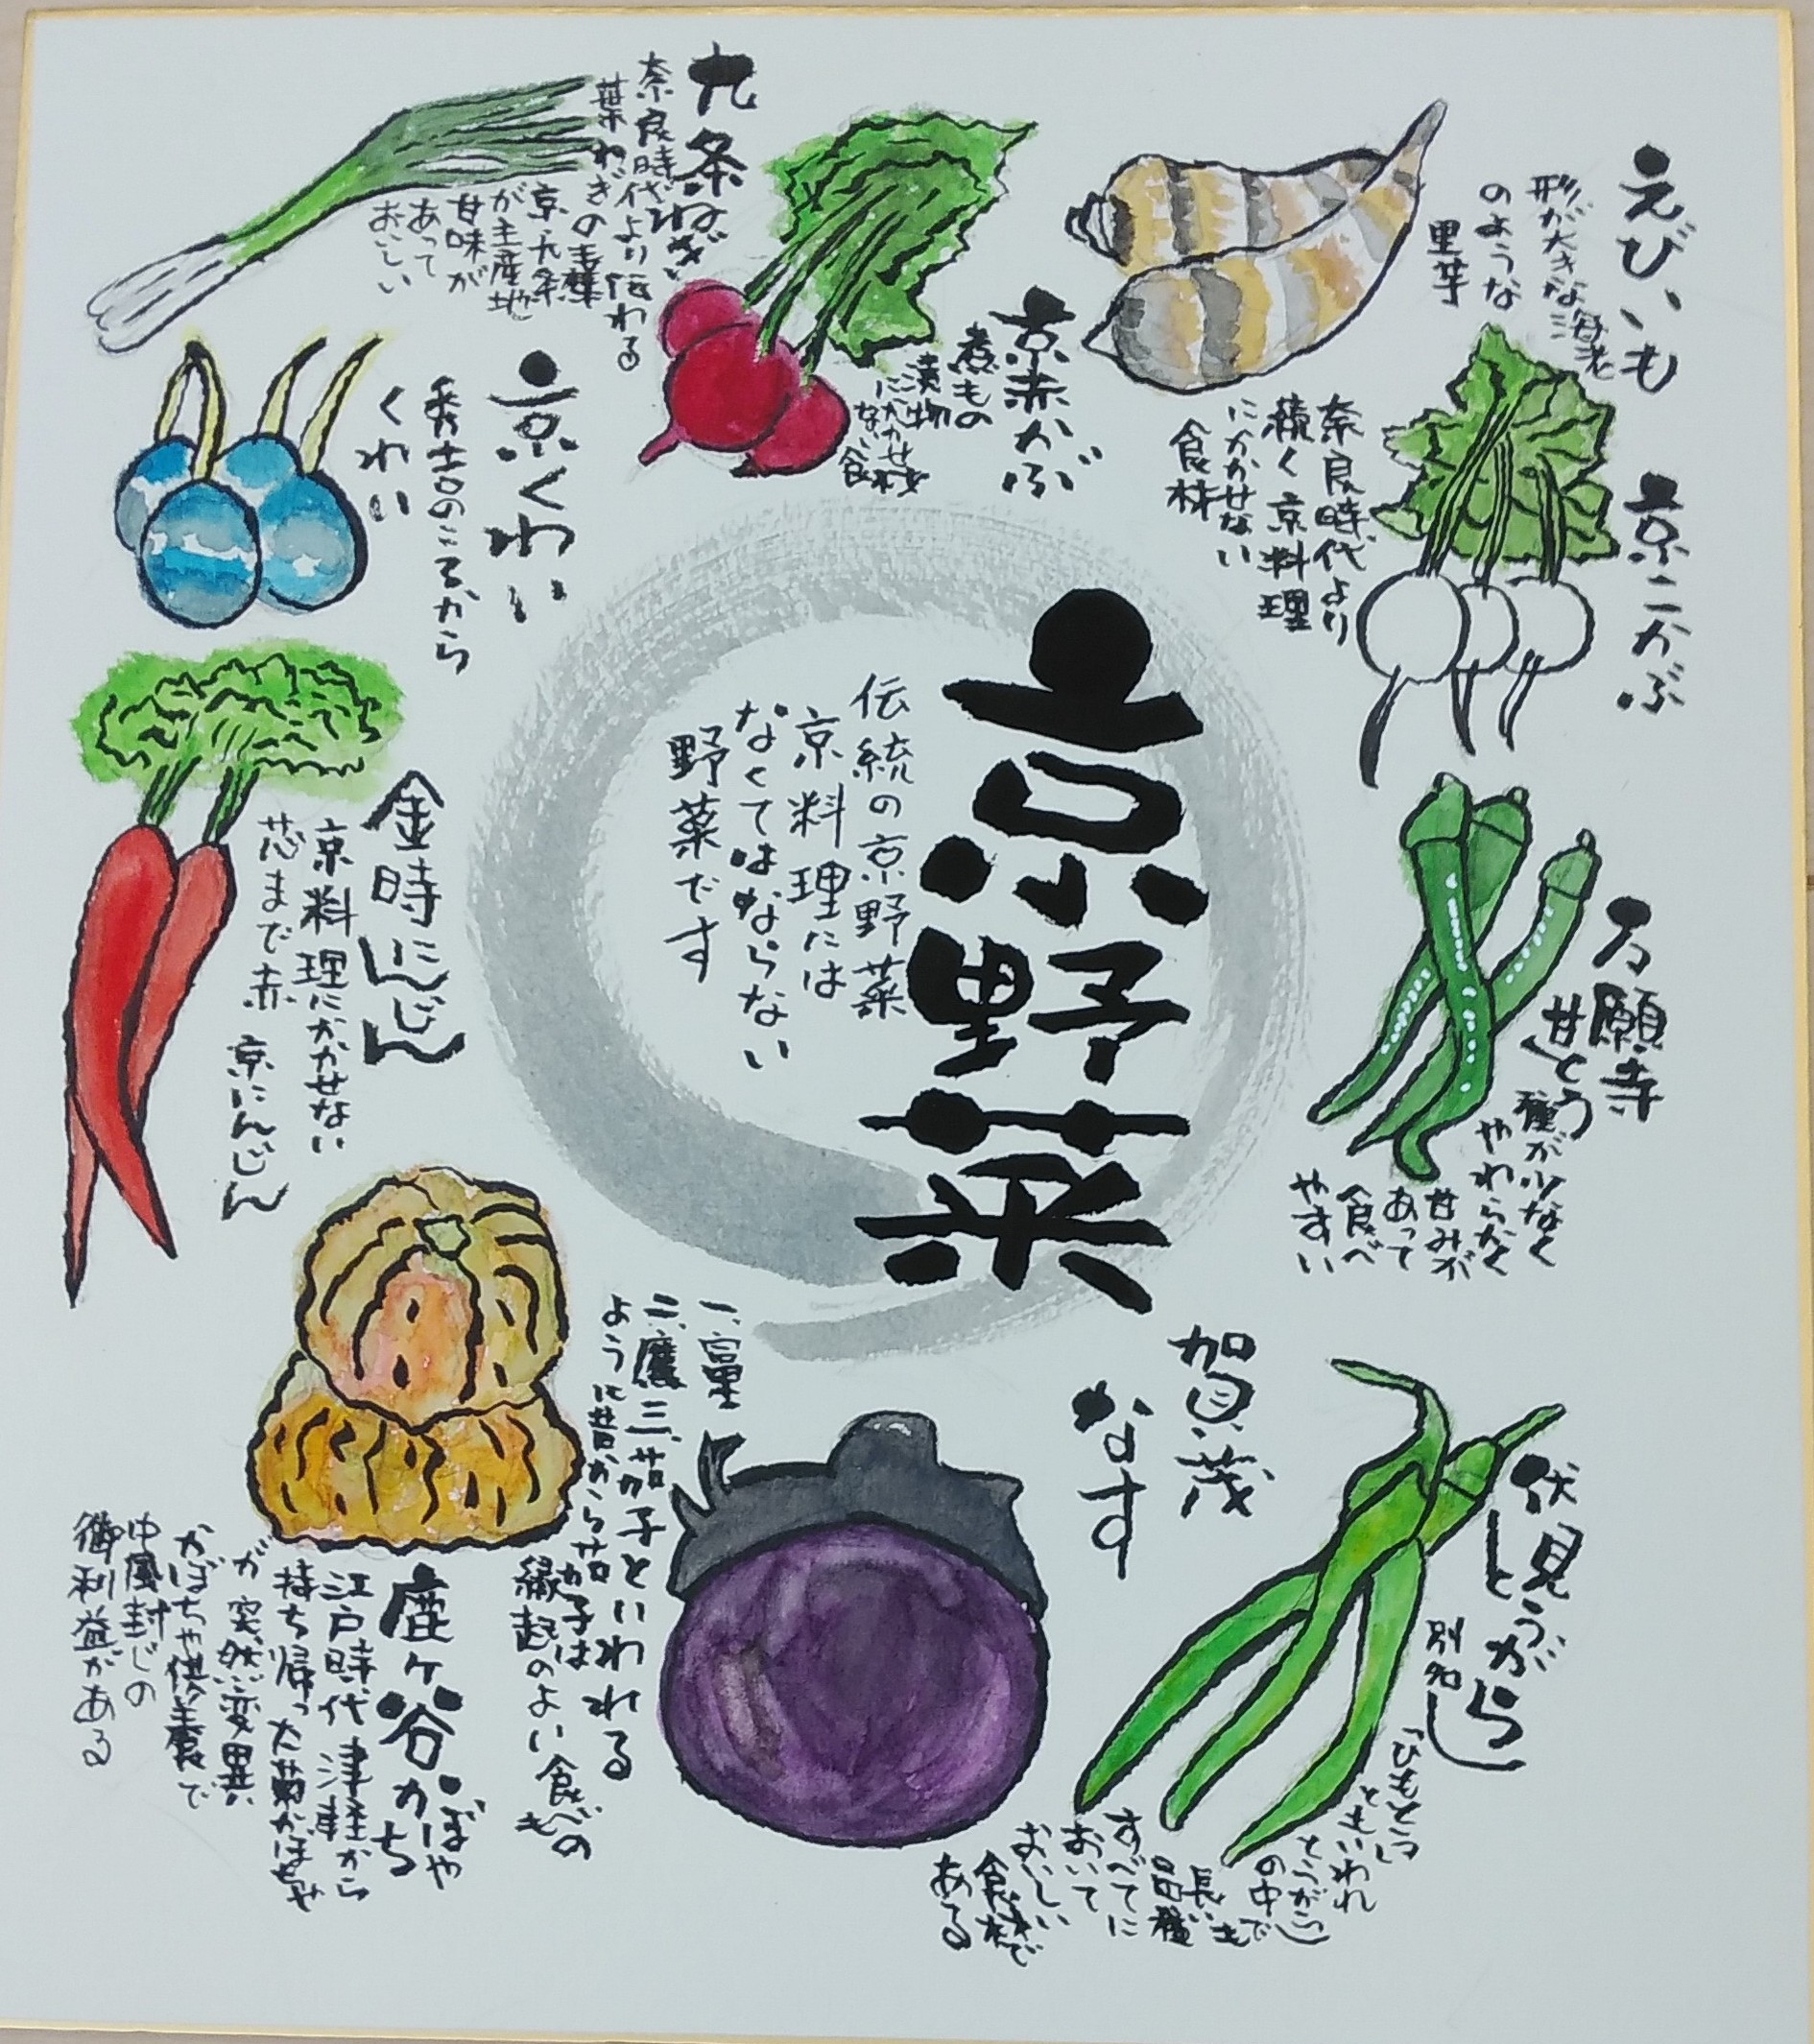 京野菜
伝統の京野菜
京料理には
なくてはならない
野菜です
えびいも
形が大きな海老
のような
里芋
京こかぶ
奈良時代より
続く京料理
にかかせない
食材
万願寺
甘とう
種が少なく
やわらかく
甘みが
あって
食べ
やすい
伏見
とうがらし
別名
「ひもとう」
ともいわれ
とうがらし
の中で
長い
品種
すべてに
おいて
おいしい
食材で
ある
京赤かぶ
煮もの
漬物
にかかせ
ない食材
九条ねぎ
奈良時代より伝わる
葉ねぎの
京九条
が主産地
甘味が
あって
おいしい
京くわい
秀吉のころから
くわい
金時にんじん
京料理にかかせない
芯まで赤
京にんじん
賀茂
なす
一、富士
二、鷹三、茄子といわれる
ように昔から茄子は
縁起のよい食べもの
鹿ヶ谷かぼちゃ
江戸時代津軽から
持ち帰った菊かぼちゃ
が突然変異
かぼちゃ供養で
中風封じの
御利益がある